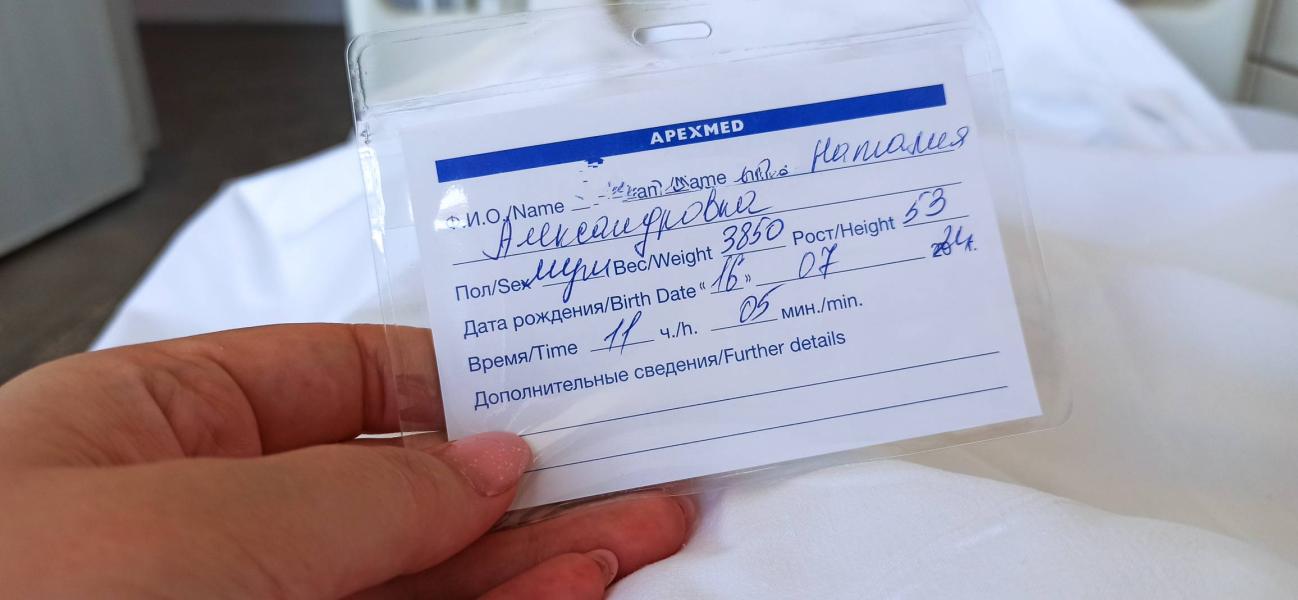 APEXMED
Ф.И.О./Name Наталия
Александровна
Пол/Sex муж Вес/Weight 3850 Рост/Height 53
Дата рождения/Birth Date “ 16 ” 07 г.
Время/Time 11 ч./h. 05 мин./min.
Дополнительные сведения/Further details